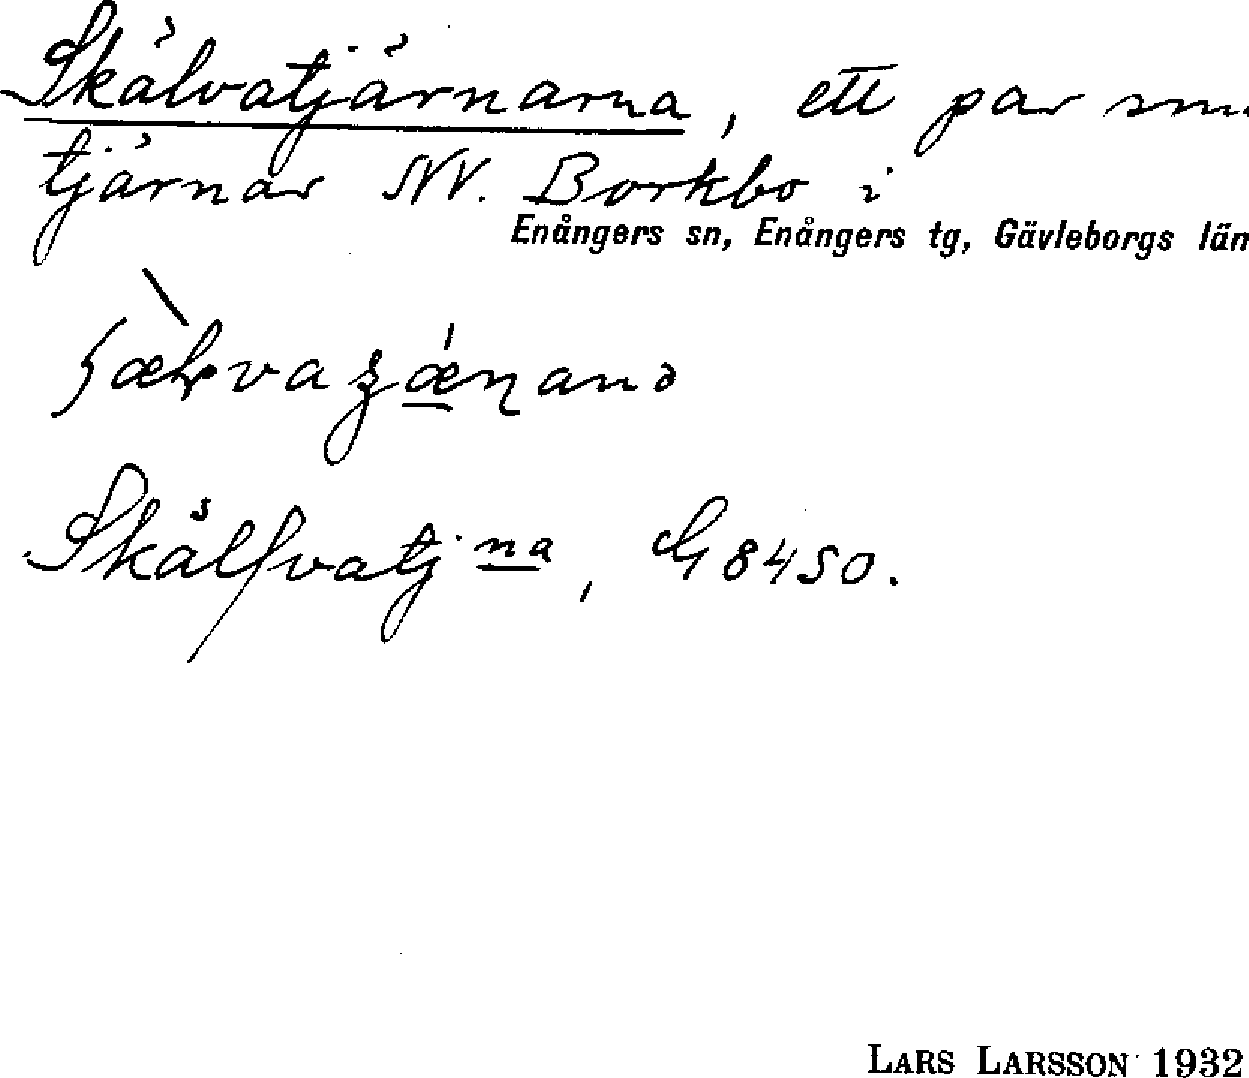 Skälvatjärnarna, ett par
tjärnar NV. Borkbo i
Enångers sn, Enångers tg, Gävleborgs län
Skälfvatj na, G 8450.
LARS LARSSON 1932